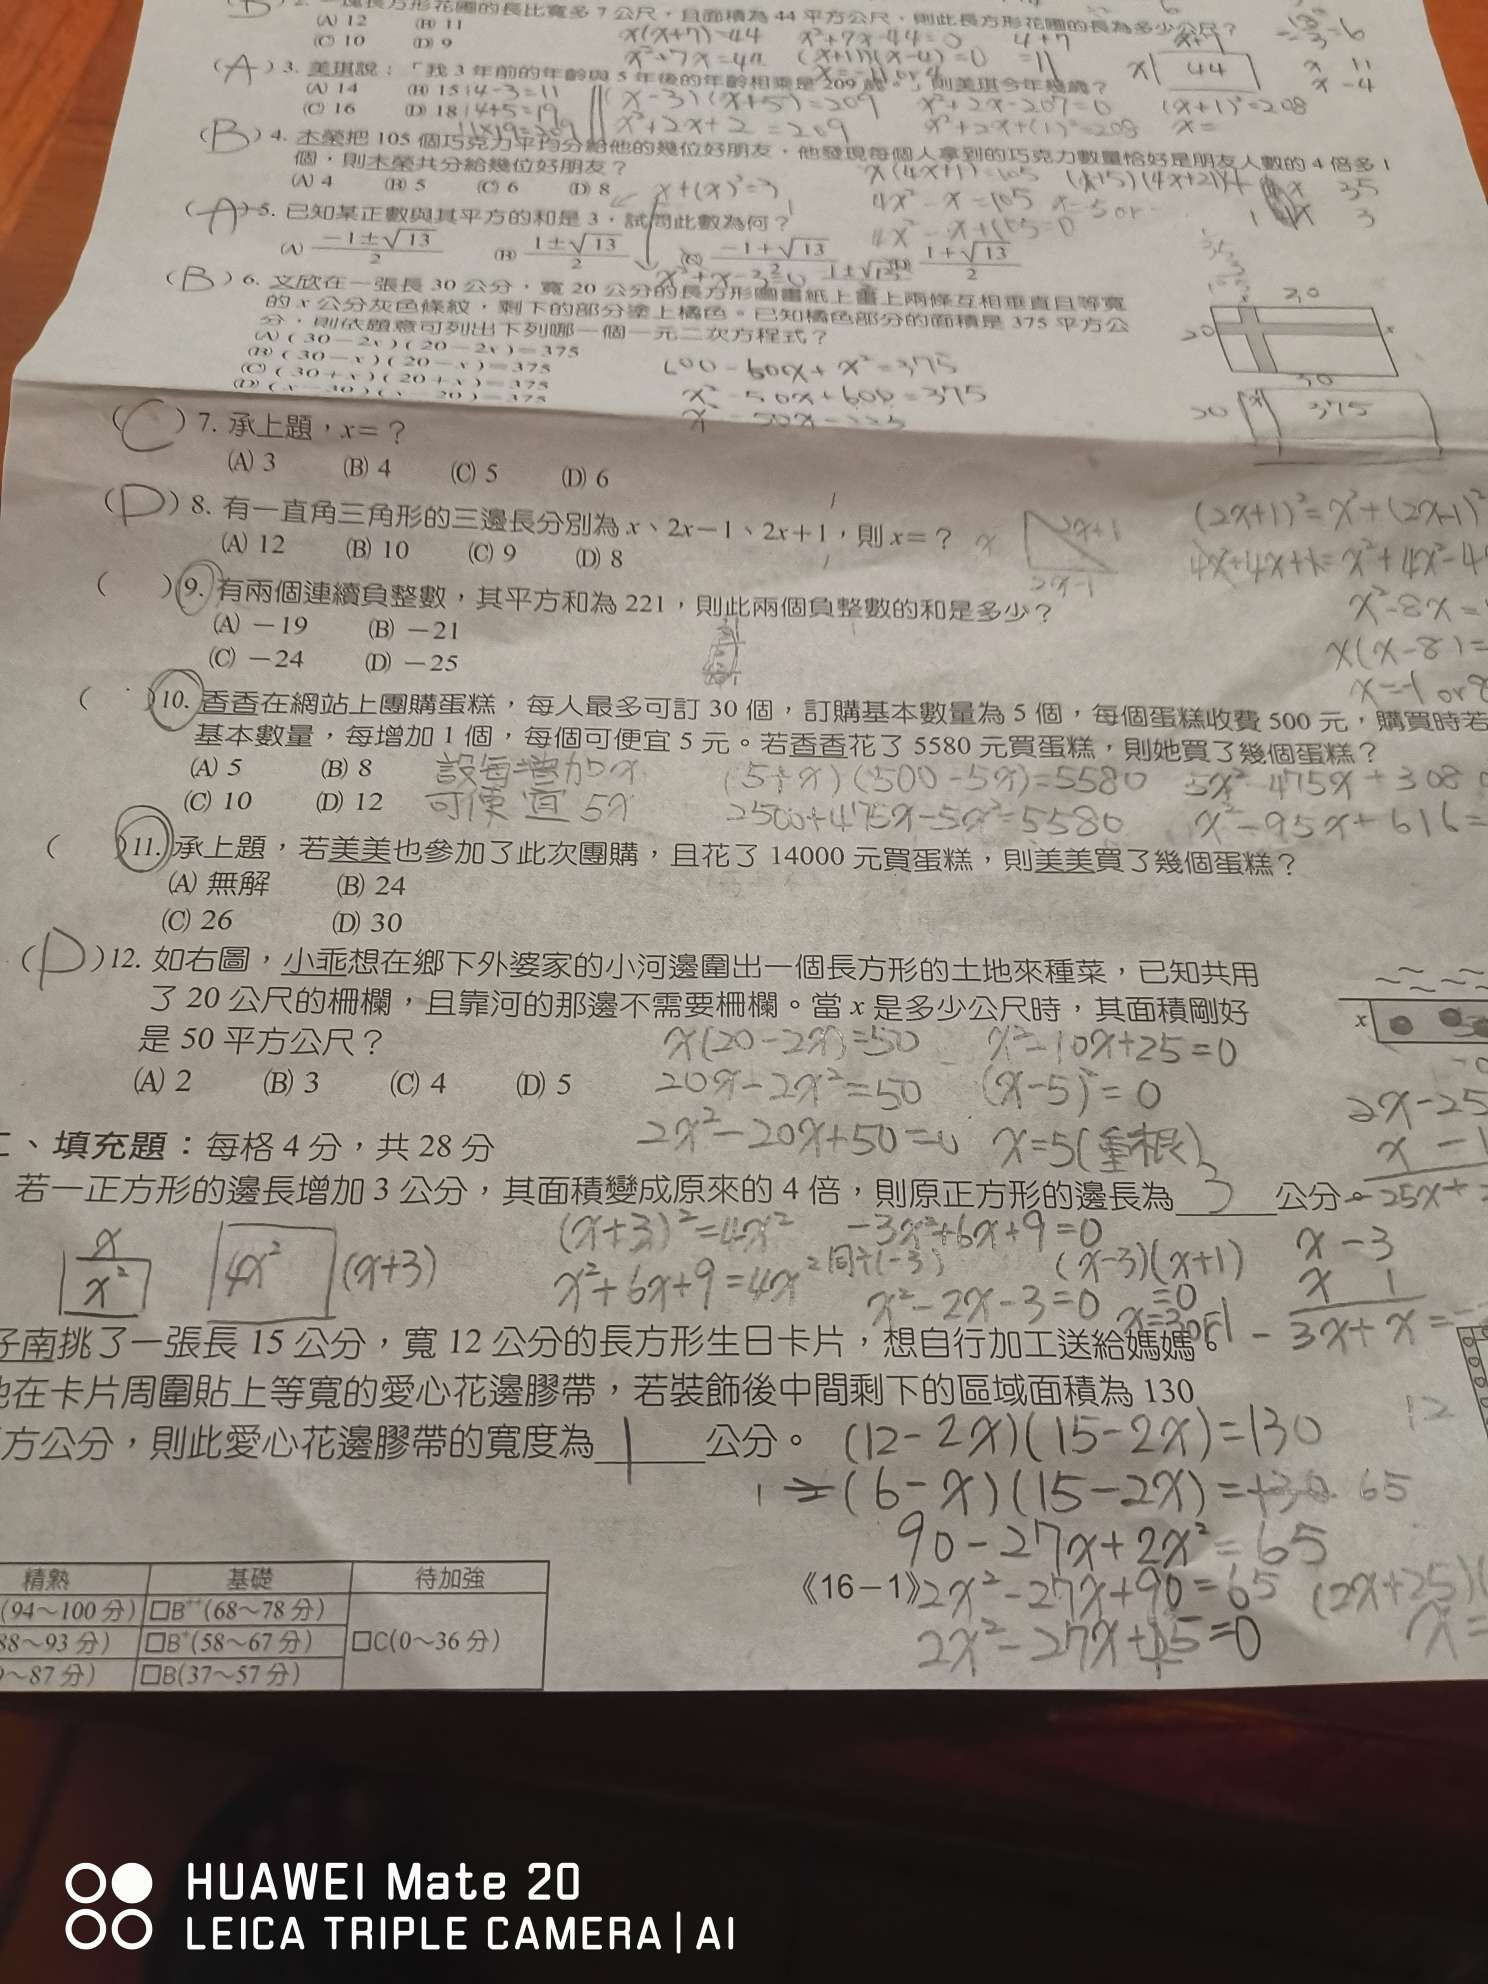 (B) 2. 一塊長方形花圃的長比寬多 7 公尺，且面積為 44 平方公尺，則此長方形花圃的長為多少公尺？
(A) 12 (B) 11
(C) 10 (D) 9
x(x+7)=44 x²+7x-44=0 4+7
x²+7x=44 (x+11)(x-4)=0 =11
44
x 11
x -4
(A) 3. 美琪說：「我 3 年前的年齡與 5 年後的年齡相乘是 209 歲。」則美琪今年幾歲？
(A) 14 (B) 15 14-3=11
(C) 16 (D) 18 14+5=19
11×19=209
(x-3)(x+5)=209 x²+2x-207=0 (x+1)²=208
x²+2x+2=209 x²+2x+(1)²=208 x=
(B) 4. 木榮把 105 個巧克力平均分給他的幾位好朋友，他發現每個人拿到的巧克力數量恰好是朋友人數的 4 倍多 1
個，則木榮共分給幾位好朋友？
(A) 4 (B) 5 (C) 6 (D) 8
x(4x+1)=105
4x²-x=105
4x²-x+105=0
x+(x)²=3
(A) 5. 已知某正數與其平方的和是 3，試問此數為何？
(A) −1±√13/2 (B) 1±√13/2 (C) −1+√13/2 (D) 1+√13/2
x²+x-3=0
(B) 6. 文欣在一張長 30 公分，寬 20 公分的長方形圖畫紙上畫上兩條互相垂直且等寬
的 x 公分灰色條紋，剩下的部分塗上橘色。已知橘色部分的面積是 375 平方公
分，則依題意可列出下列哪一個一元二次方程式？
(A) (30−2x)(20−2x)=375
(B) (30−x)(20−x)=375
(C) (30+x)(20+x)=375
(D) (x−30)(x−20)=375
600-600x+x²=375
x²-50x+600=375
20 x
30
20 x 375
(C) 7. 承上題，x=？
(A) 3 (B) 4 (C) 5 (D) 6
(D) 8. 有一直角三角形的三邊長分別為 x、2x−1、2x+1，則 x=？
(A) 12 (B) 10 (C) 9 (D) 8
x 2x+1
2x-1
(2x+1)²=x²+(2x-1)²
x²-8x=
x(x-8)=
( ) 9. 有兩個連續負整數，其平方和為 221，則此兩個負整數的和是多少？
(A) −19 (B) −21
(C) −24 (D) −25
( ) 10. 香香在網站上團購蛋糕，每人最多可訂 30 個，訂購基本數量為 5 個，每個蛋糕收費 500 元，購買時若
基本數量，每增加 1 個，每個可便宜 5 元。若香香花了 5580 元買蛋糕，則她買了幾個蛋糕？
(A) 5 (B) 8
(C) 10 (D) 12
設每增加x
可便宜 5x
(5+x)(500-5x)=5580 5x²-475x+3080
2500+475x-5x²=5580 x²-95x+616=
( ) 11. 承上題，若美美也參加了此次團購，且花了 14000 元買蛋糕，則美美買了幾個蛋糕？
(A) 無解 (B) 24
(C) 26 (D) 30
(D) 12. 如右圖，小乖想在鄉下外婆家的小河邊圍出一個長方形的土地來種菜，已知共用
了 20 公尺的柵欄，且靠河的那邊不需要柵欄。當 x 是多少公尺時，其面積剛好
是 50 平方公尺？
(A) 2 (B) 3 (C) 4 (D) 5
x
x(20-2x)=50 x²-10x+25=0
20x-2x²=50 (x-5)²=0
2x²-20x+50=0 x=5(重根)
2x-25
x -1
-25x+
二、填充題：每格 4 分，共 28 分
若一正方形的邊長增加 3 公分，其面積變成原來的 4 倍，則原正方形的邊長為 3 公分。
x
x² 4x² (x+3)
(x+3)²=4x² -3x²+6x+9=0
x²+6x+9=4x² 同÷(-3) (x-3)(x+1)
x²-2x-3=0 =0
x -3
x 1
-3x+x=
子南挑了一張長 15 公分，寬 12 公分的長方形生日卡片，想自行加工送給媽媽。
他在卡片周圍貼上等寬的愛心花邊膠帶，若裝飾後中間剩下的區域面積為 130
方公分，則此愛心花邊膠帶的寬度為 1 公分。
12
(12-2x)(15-2x)=130
(6-x)(15-2x)=130 65
90-27x+2x²=65
2x²-27x+90=65 (2x+25)(
2x²-27x+25=0 x=
精熟 基礎 待加強
(94～100 分) □B⁺⁺(68～78 分)
88～93 分) □B⁺(58～67 分) □C(0～36 分)
～87 分) □B(37～57 分)
《16－1》
HUAWEI Mate 20
LEICA TRIPLE CAMERA | AI